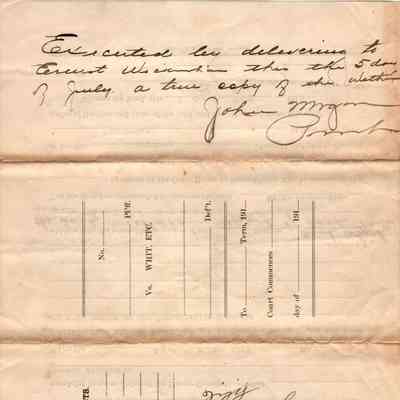 Executed by delivering to
Ernest this the 5 day
of July a true copy of the within
John Morgan
No.
Pl'ff.
Vs. WRIT, ETC.
Def't.
To Term, 191
Court Commences
day of 191